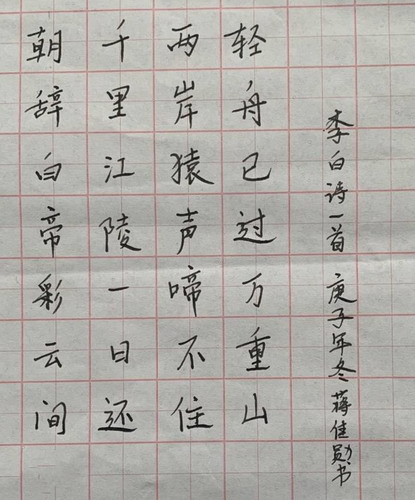 朝辞白帝彩云间
千里江陵一日还
两岸猿声啼不住
轻舟已过万重山
李白诗一首 庚子年冬 蒋佳勋书